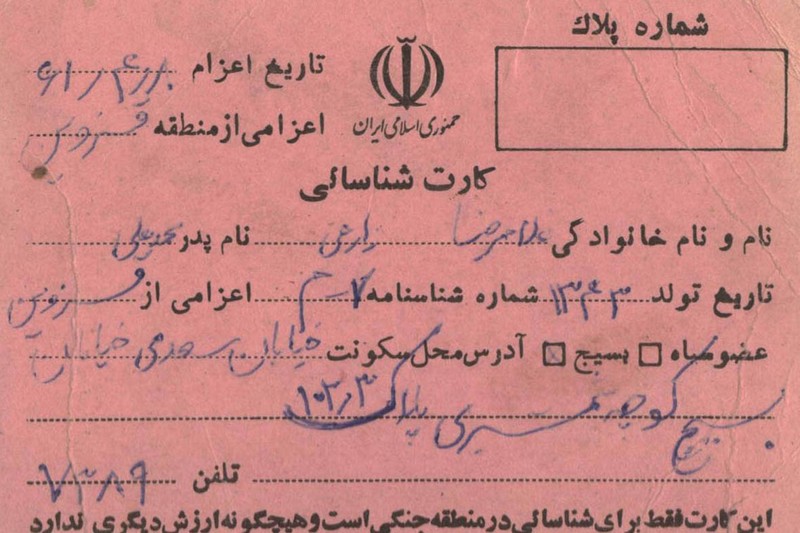 شماره پلاك
تاریخ اعزام
جمهوری اسلامی ایران
اعزامی از منطقه قزوین
کارت شناسائی
نام و نام خانوادگی غلامرضا زارعی نام پدر محمدعلی
تاریخ تولد ۱۳۴۳ شماره شناسنامه ۷ اعزامی از قزوین
عضو سپاه □ بسیج ☒ آدرس محل سکونت خیابان سعدی خیابان
بسیج کوچه پلاک ۱۰۳٫۳
تلفن ۷۳۸۹
این کارت فقط برای شناسائی در منطقه جنگی است و هیچگونه ارزش دیگری ندارد